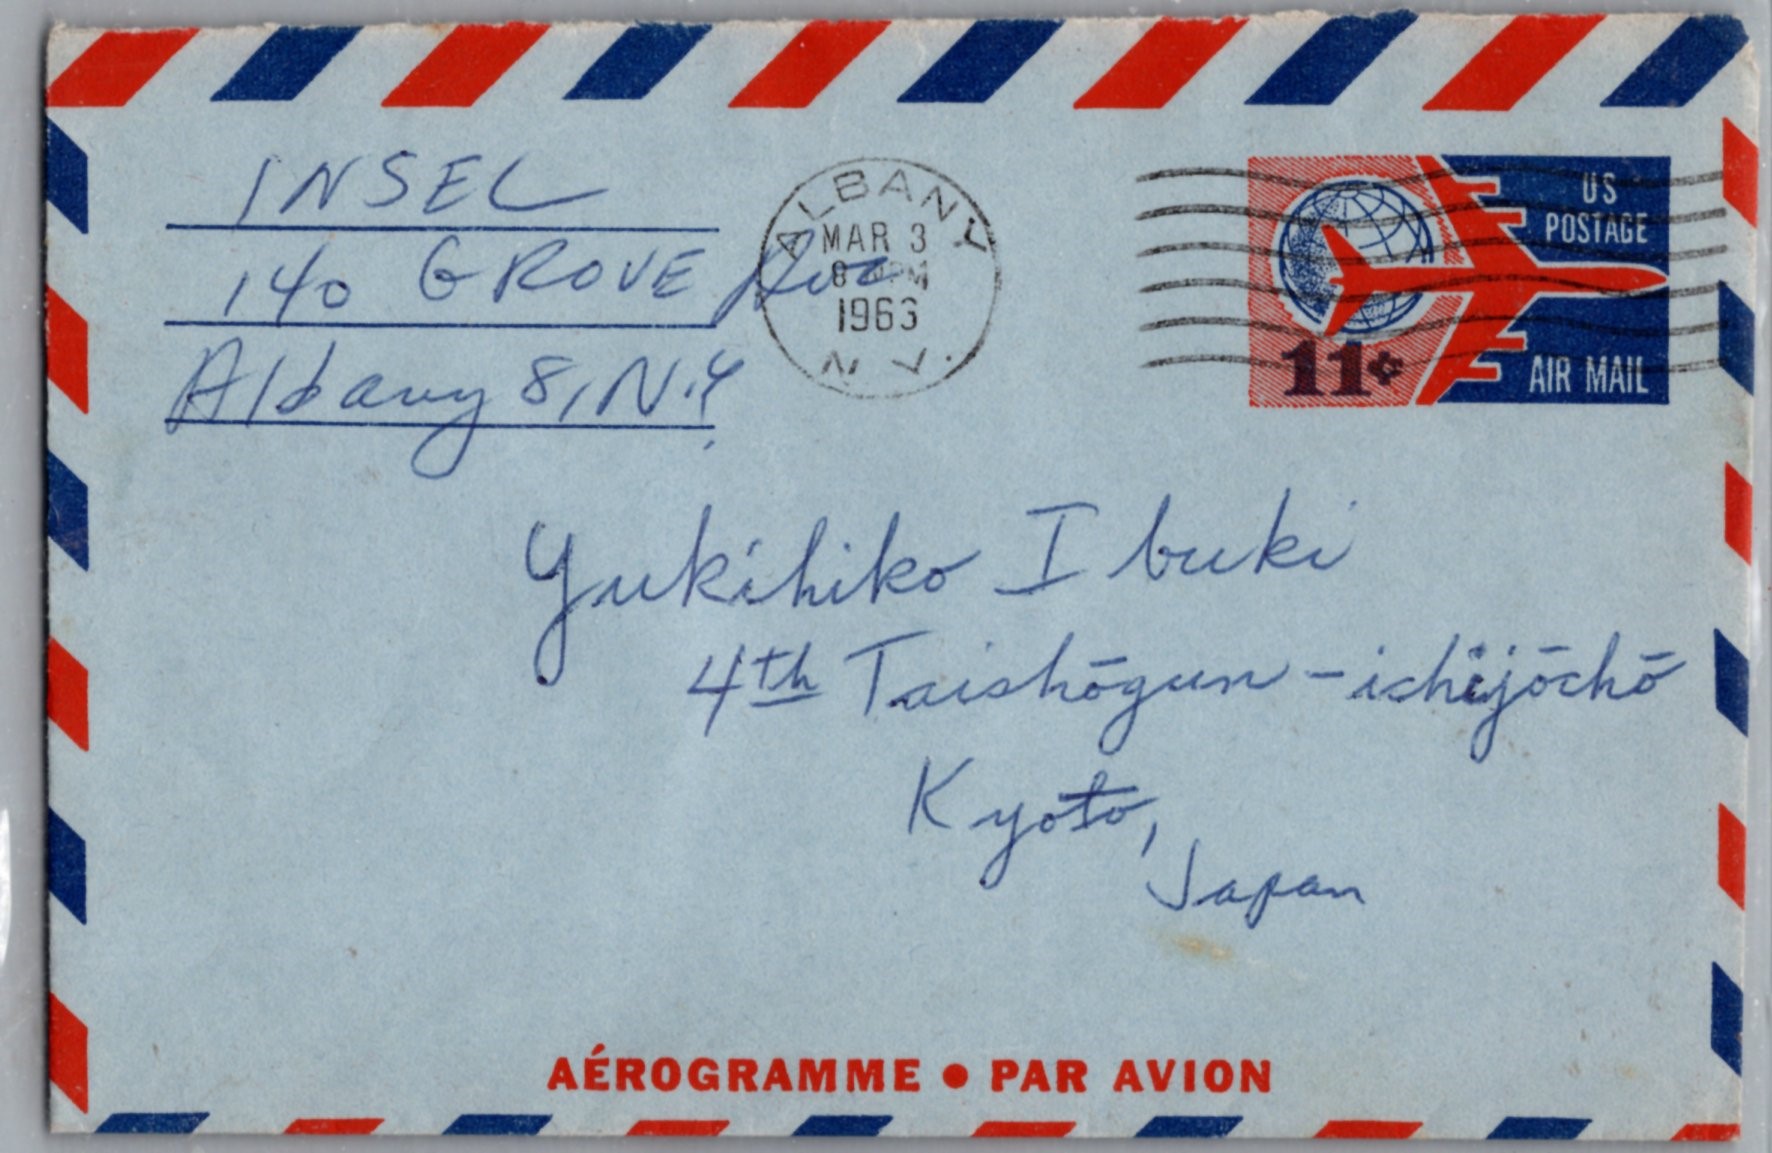 INSEL
140 GROVE Ave
Albany 8, N.Y.
ALBANY
MAR 3
8 PM
1963
N.Y.
US
POSTAGE
11¢
AIR MAIL
Yukihiko Ibuki
4th Taishōgun-ichijōchō
Kyoto,
Japan
AÉROGRAMME • PAR AVION